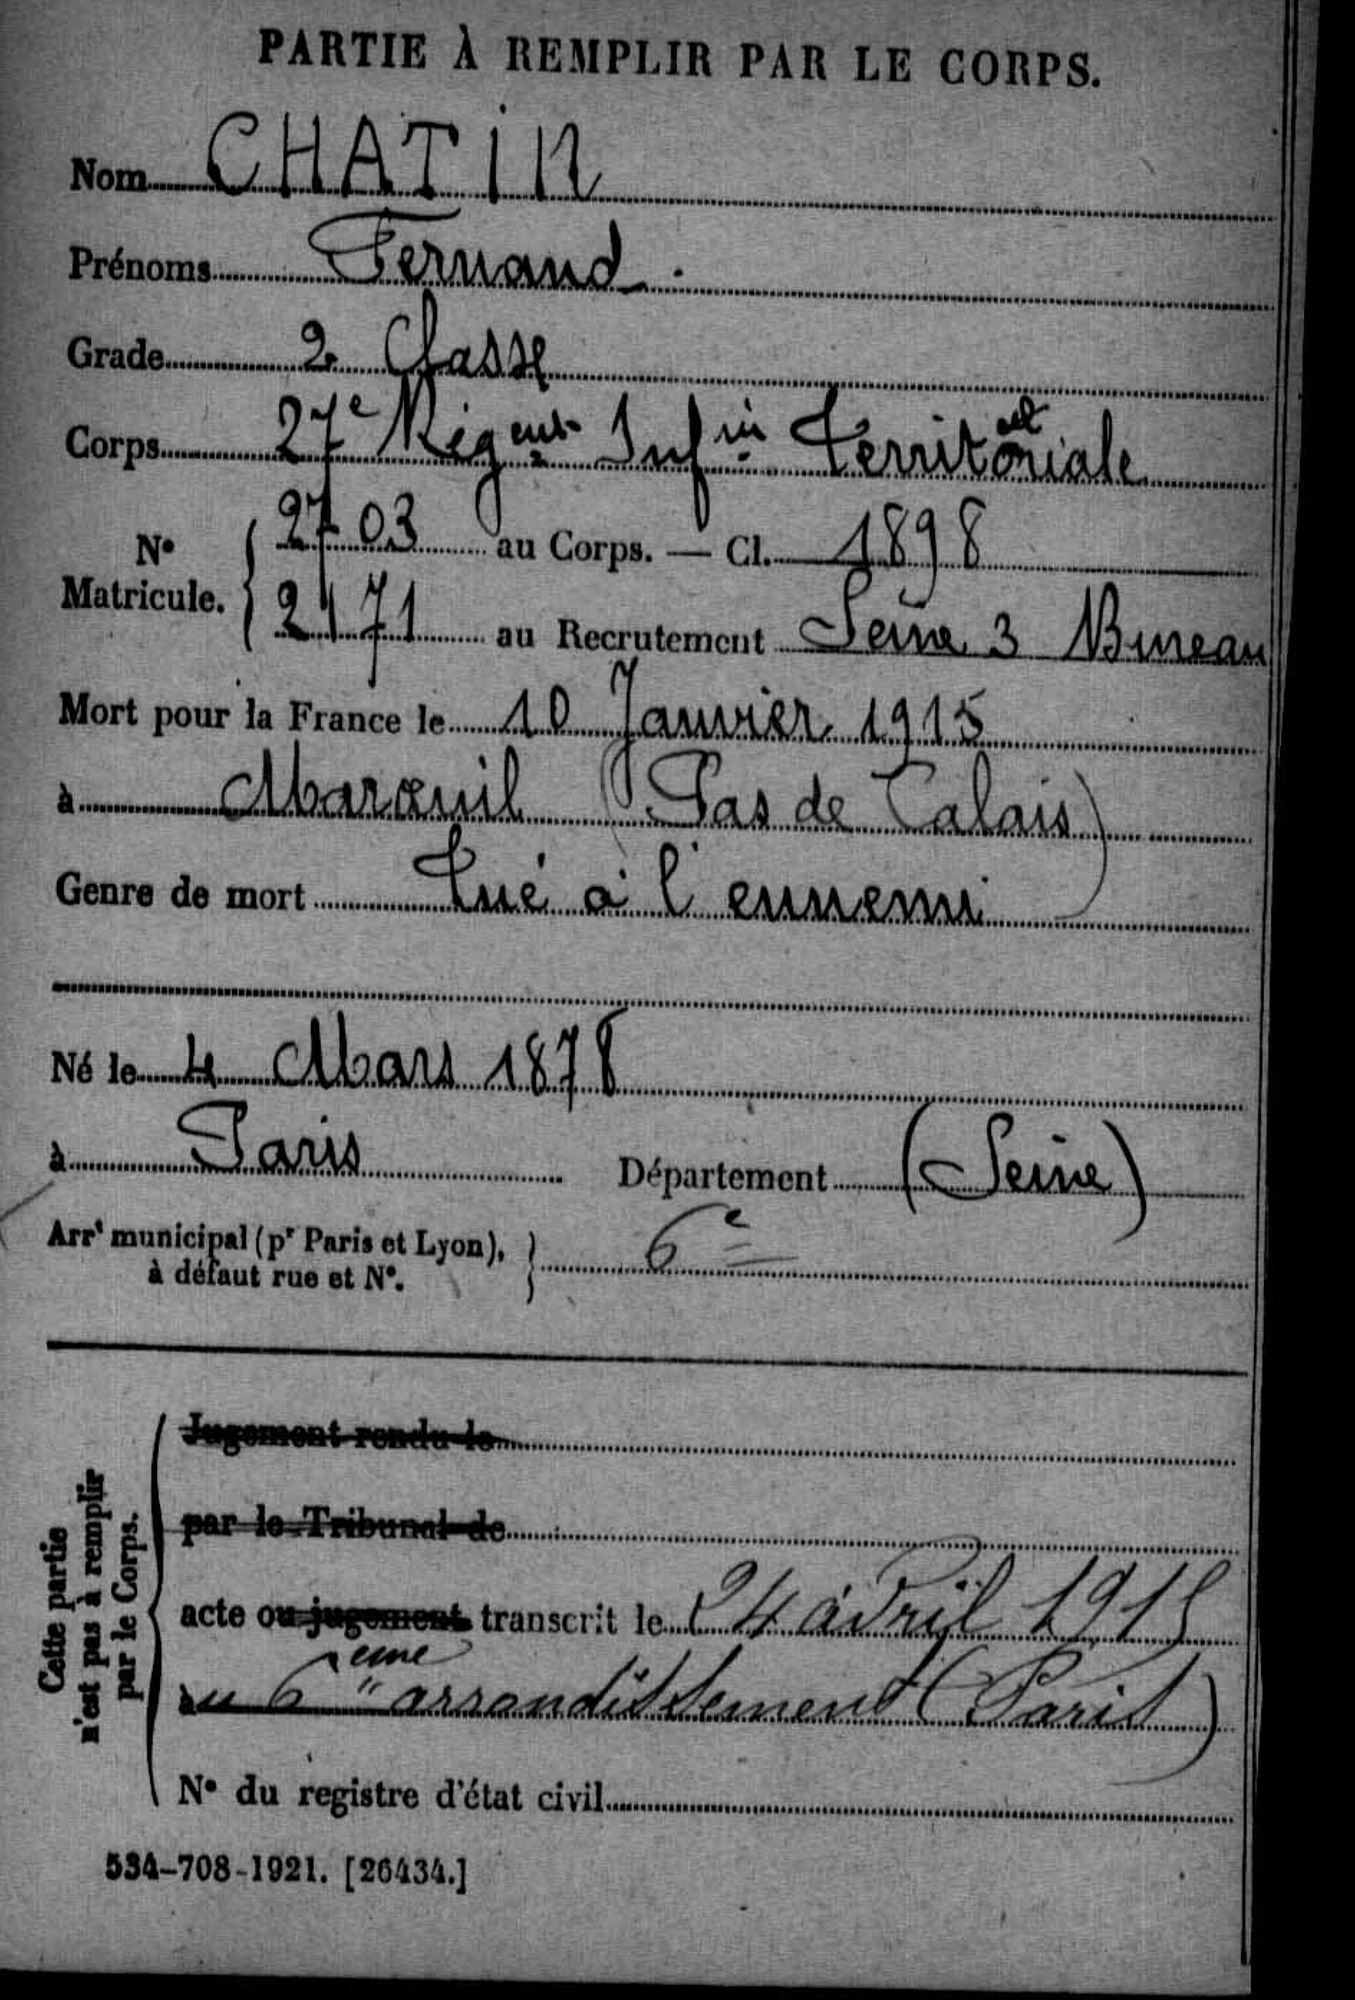 PARTIE À REMPLIR PAR LE CORPS.
Nom CHATIN
Prénoms Fernand.
Grade 2e Classe
Corps 27e Régent Infie Territoriale
N° Matricule. { 2703 au Corps. — Cl. 1898
2171 au Recrutement Seine 3 Bureau
Mort pour la France le 10 Janvier 1915
à Marœuil (Pas de Calais)
Genre de mort Tué à l'ennemi
Né le 4 Mars 1878
à Paris Département (Seine)
Arrt municipal (pr Paris et Lyon), à défaut rue et N°. } 6e
Cette partie n'est pas à remplir par le Corps.
Jugement rendu le
par le Tribunal de
acte ou jugement transcrit le 24 avril 1915
au 6eme arrondissement (Paris)
N° du registre d'état civil
534-708-1921. [26434.]